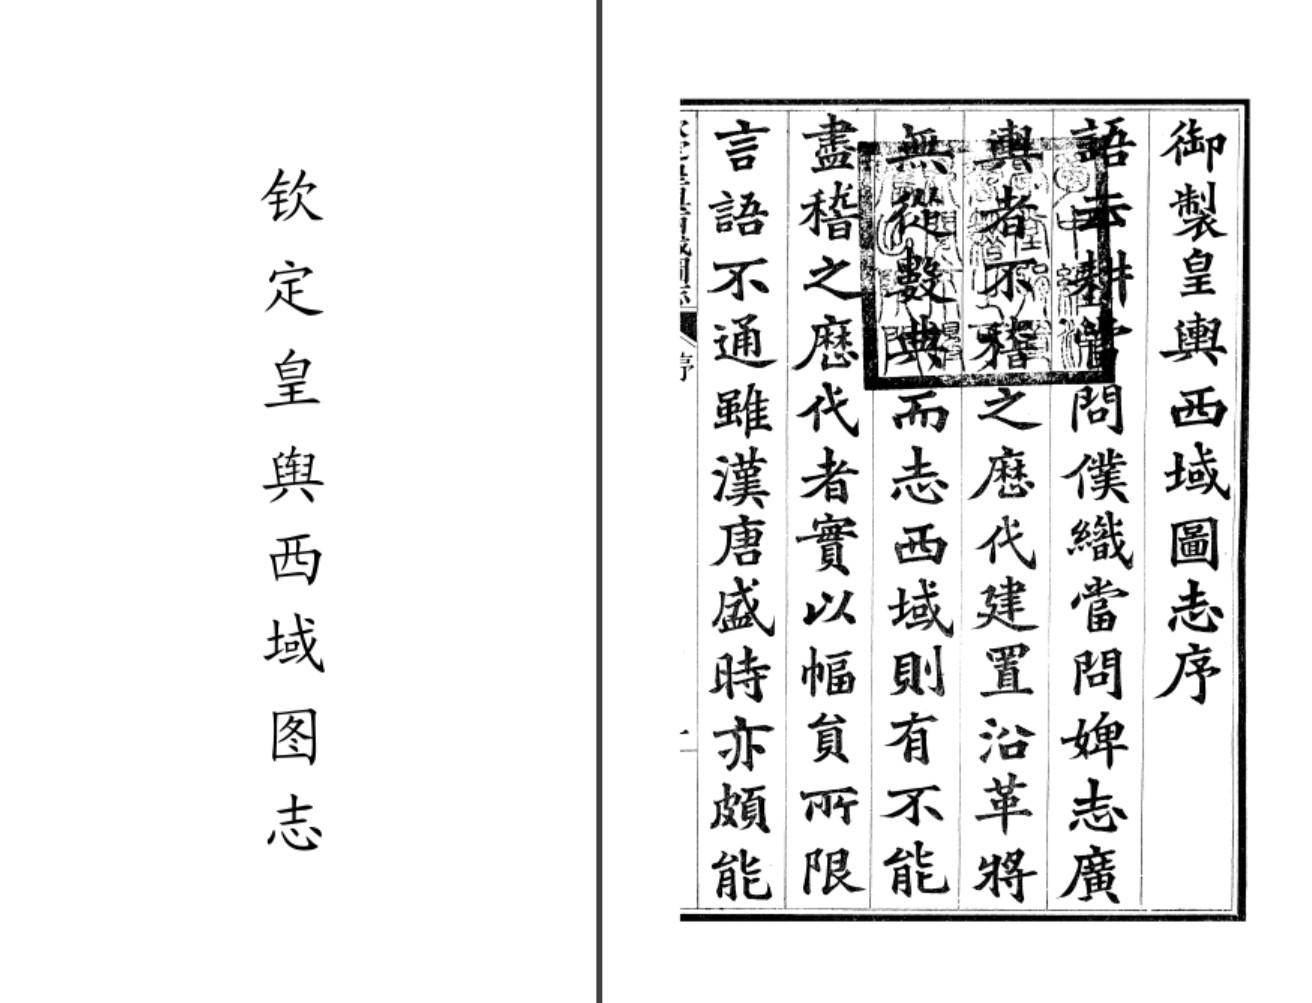 钦定皇舆西域图志
御製皇輿西域圖志序
語云耕當問僕織當問婢志廣
輿者不稽之歷代建置沿革將
無從數典而志西域則有不能
盡稽之歷代者實以幅員所限
言語不通雖漢唐盛時亦頗能